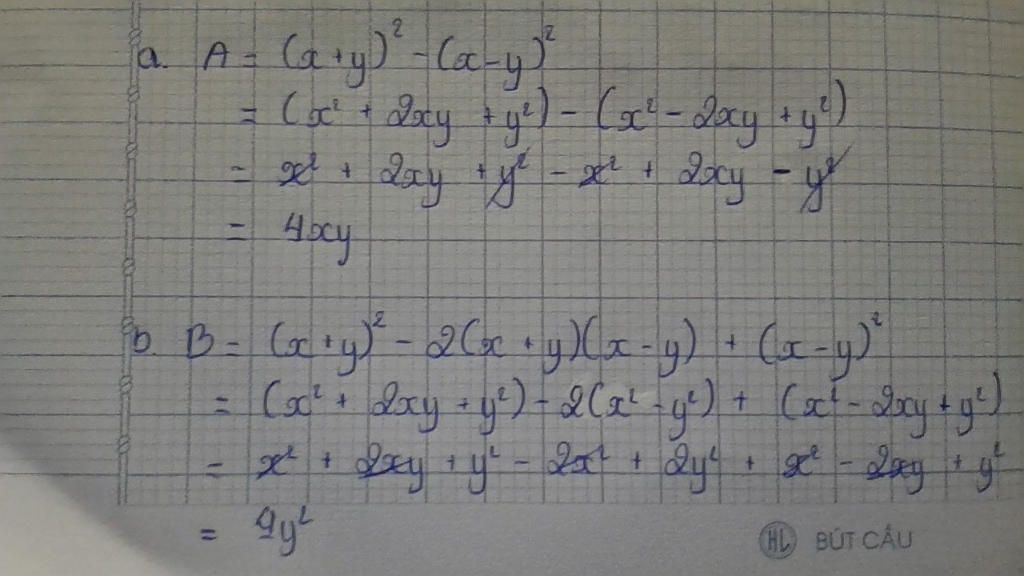 a. A = (x+y)² - (x-y)²
= (x² + 2xy + y²) - (x² - 2xy + y²)
= x² + 2xy + y² - x² + 2xy - y²
= 4xy
b. B = (x+y)² - 2(x+y)(x-y) + (x-y)²
= (x² + 2xy + y²) - 2(x² - y²) + (x² - 2xy + y²)
= x² + 2xy + y² - 2x² + 2y² + x² - 2xy + y²
= 4y²
HL BÚT CÂU